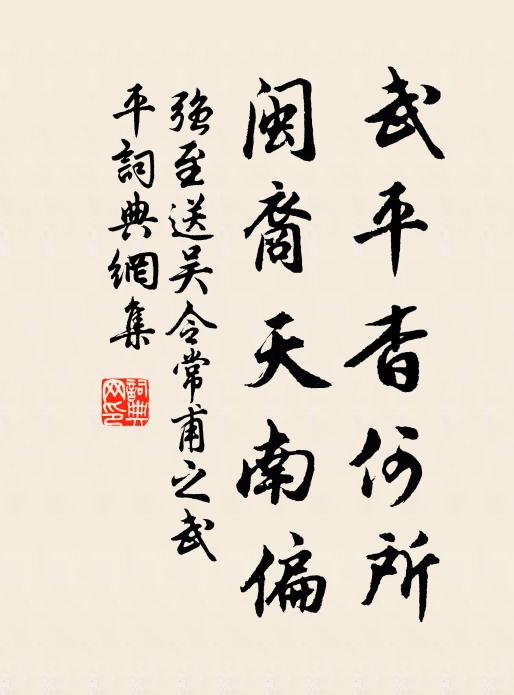 武平杳何所
闽裔天南偏
強至送吴令常甫之武
平詞典網集
詞典
网印